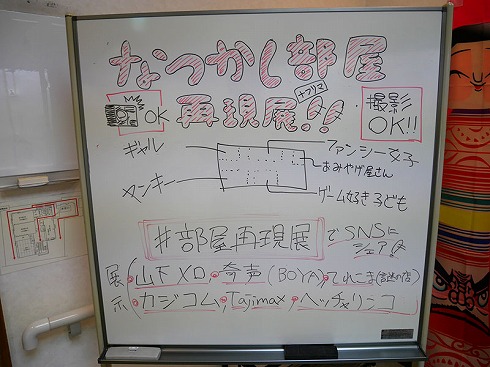 なつかし部屋
再現展!!
+プリマ
OK
撮影
OK!!
ギャル
ヤンキー
ファンシー女子
おみやげ屋さん
ゲーム好き子ども
#部屋再現展 でSNSに
シェア
展示
山下メロ・奇声(BOYA)・てれこま(謎の店)
カジコム・Tajimax・ヘッチャリンコ